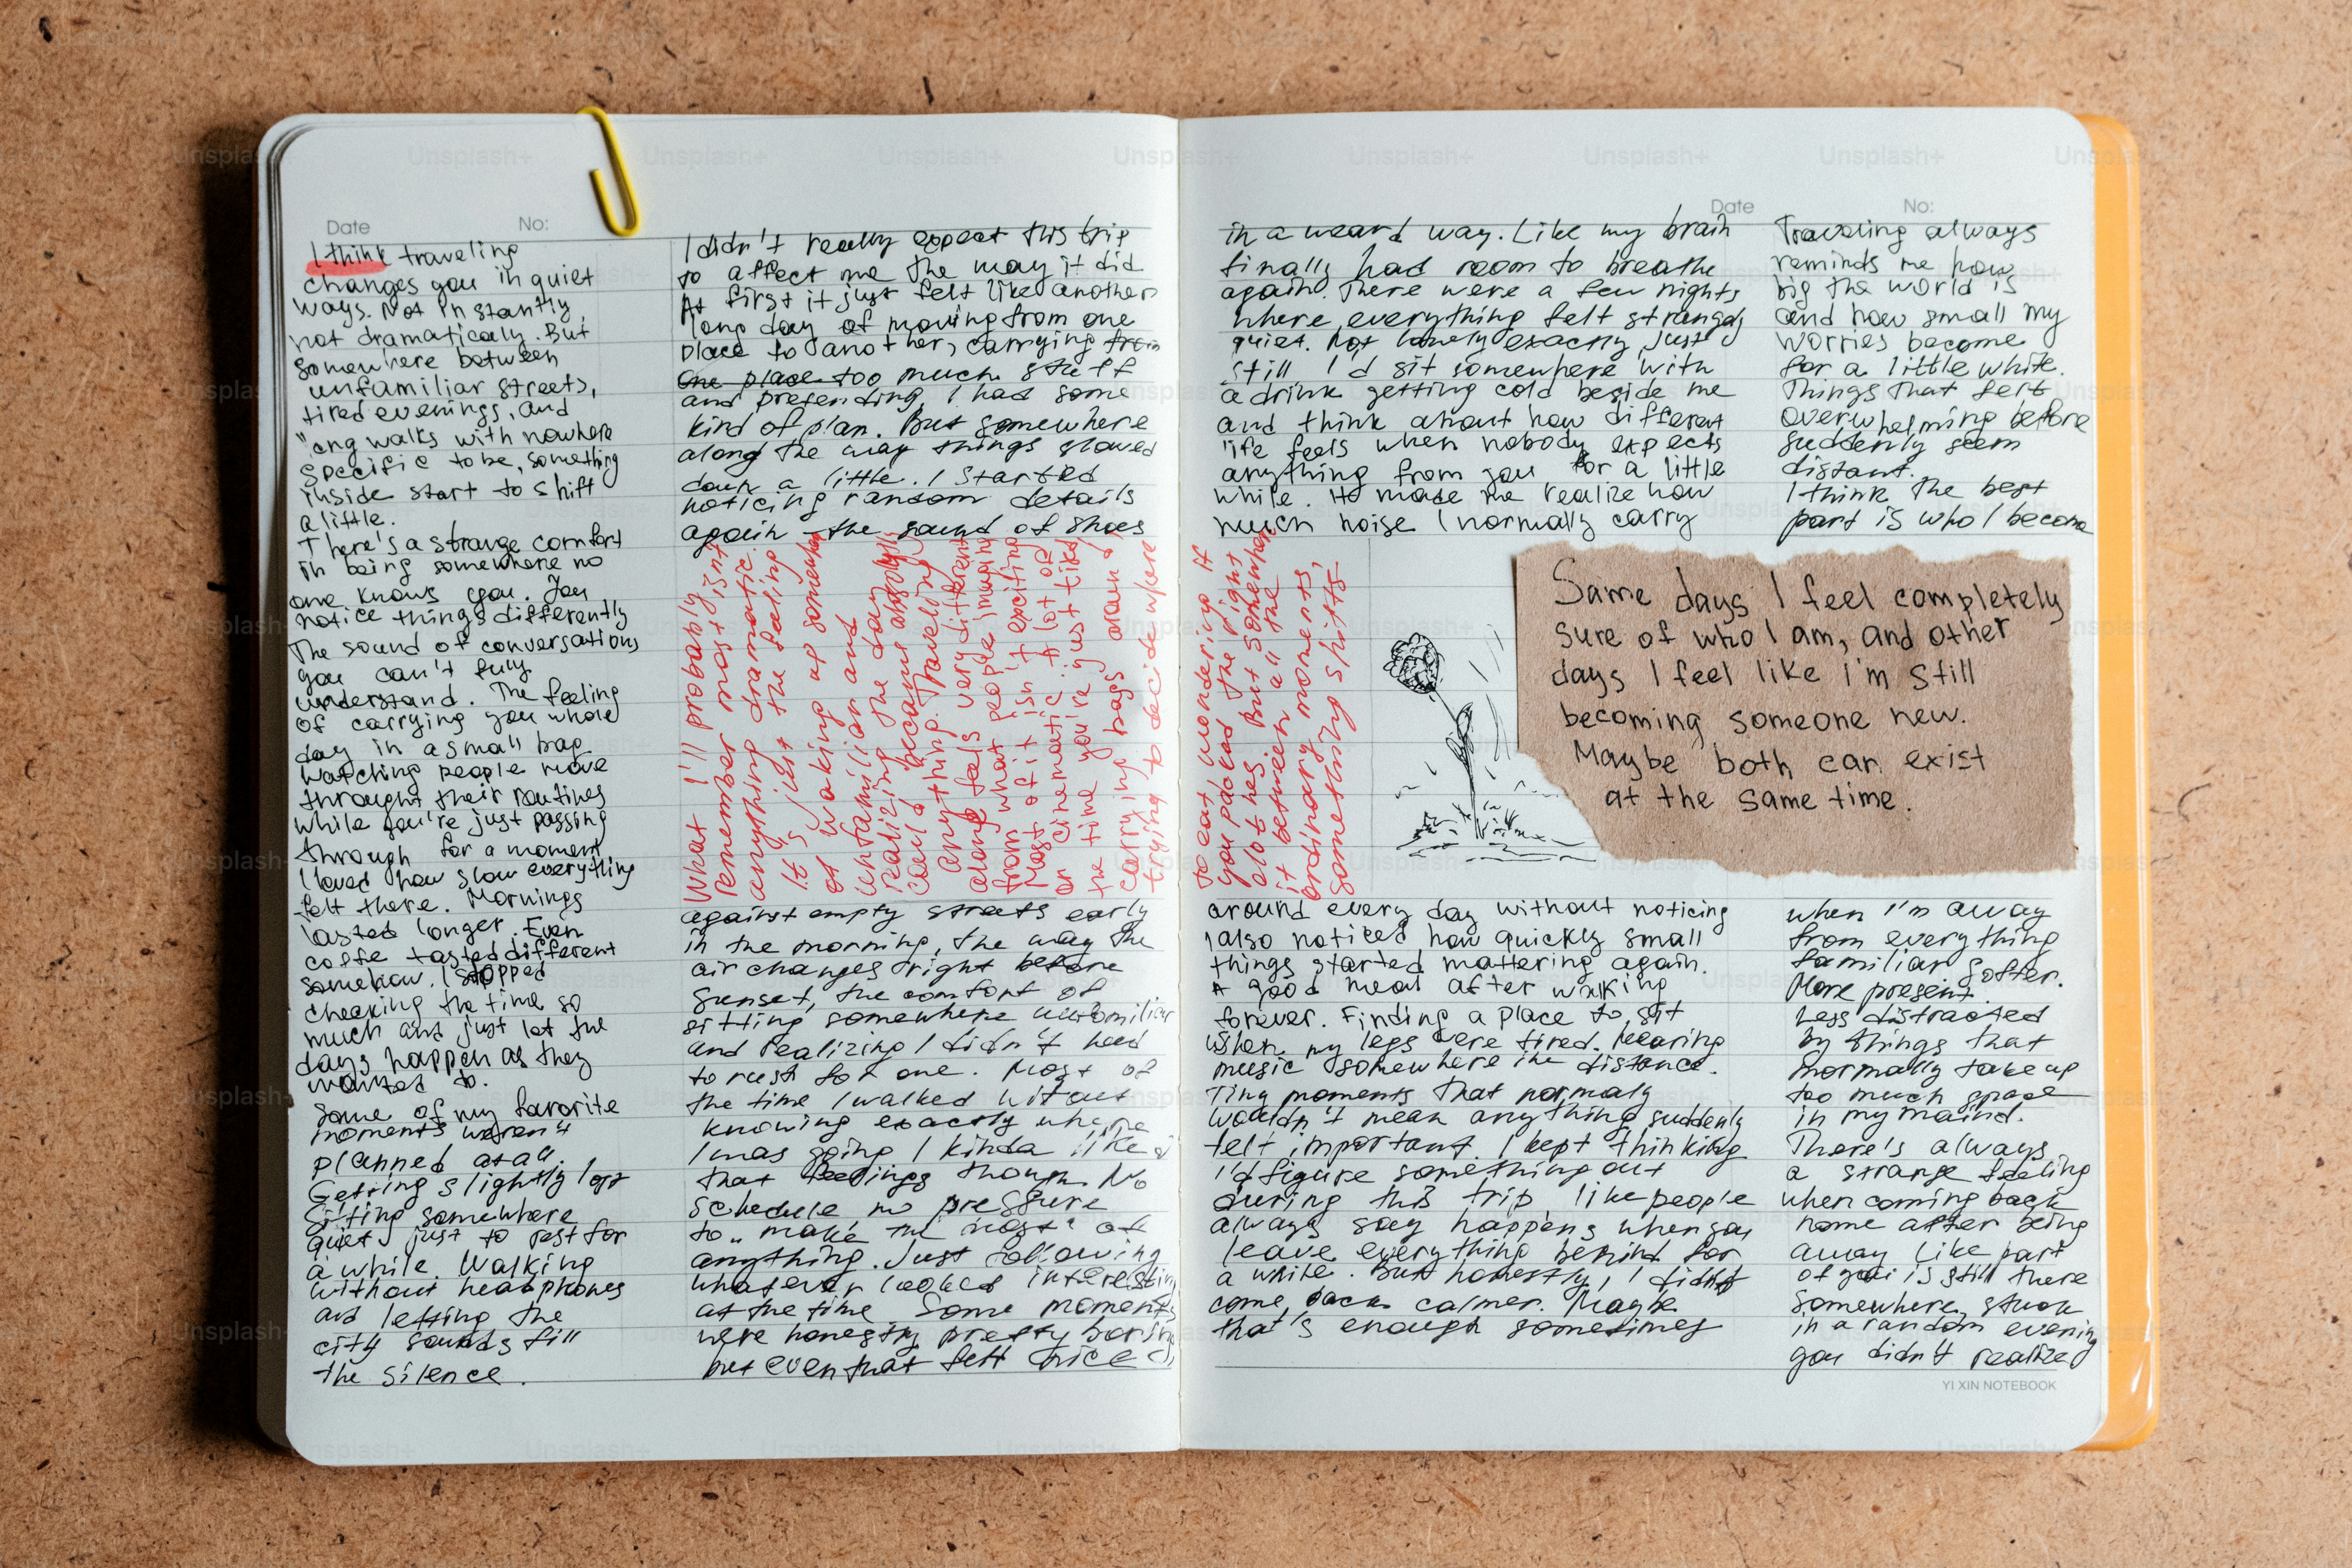 Date No:
I think traveling
changes you in quiet
ways. Not instantly,
not dramaticaly. But
somewhere between
unfamiliar streets,
tired evenings, and
walks with nowhere
specific to be, something
inside start to shift
a little.
There's a strange comfort
in being somewhere no
one knows you. You
notice things differently
The sound of conversations
you can't fully
understand. The feeling
of carrying you whole
day in a small bag
watching people move
throught their routines
while you're just passing
through for a moment
I loved how slow everything
felt there. Mornings
lasted longer. Even
coffe tasted different
somehow. I stopped
checking the time so
much and just let the
days happen as they
wanted to.
Some of my favorite
moments weren't
planned at all.
Getting slightly lost
Sitting somewhere
quiet just to rest for
a while. Walking
without headphones
and letting the
city sounds fill
the silence.
I didn't really expect this trip
to affect me the way it did
At first it just felt like another
long day of moving from one
place to another, carrying from
one place too much stuff
and pretending I had some
kind of plan. But somewhere
along the way things slowed
down a little. I started
noticing random details
again - the sound of shoes
What I'll probably
remember most isn't
anything dramatic.
It's just the feeling
of waking up somewhere
unfamiliar and
realizing the day
could became absolutly
anything. Traveling
alone feels very different
from what people imagine
Most of it isn't exciting
or cinematic. A lot of
the time you're just tired
carrying bags around
trying to decide where
against empty streets early
in the morning, the way the
air changes right before
sunset, the comfort of
sitting somewhere unfamiliar
and realizing I didn't need
to rush for one. Most of
the time I walked without
knowing exactly where
I was going I kinda liked
that feelings though. No
schedule no pressure
to „make the most" of
anything. Just following
whatever looked interesting
at the time Some moments
were honestly pretty boring
but even that felt nice
Date No:
in a weard way. Like my brain
finally had room to breathe
again. There were a few nights
where everything felt strangely
quiet. Not lonely exactly, just
still I'd sit somewhere with
a drink getting cold beside me
and think about how different
life feels when nobody expects
anything from you for a little
while. It made me realize how
much noise I normally carry
to eat, wondering if
you packed the right
clothes But somewhere
it between all the
ordinary moments,
something shifts.
around every day without noticing
I also noticed how quickly small
things started mattering again.
A good meal after walking
forever. Finding a place to sit
when my legs were tired. Hearing
music somewhere in the distance.
Tiny moments that normaly
wouldn't mean anything suddenly
felt important. I kept thinking
I'd figure something out
during this trip like people
always say happens when you
leave everything behind for
a while. But honestly, I didn't
come back calmer. Maybe
that's enough sometimes
Traveling always
reminds me how
big the world is
and how small my
worries become
for a little while.
Things that felt
overwhelming before
suddenly seem
distant.
I think the best
part is who I become
Same days I feel completely
sure of who I am, and other
days I feel like I'm still
becoming someone new.
Maybe both can exist
at the same time.
when I'm away
from everything
familiar Softer.
More present.
Less distracted
by things that
normally take up
too much space
in my maind.
There's always
a strange feeling
when coming back
home after being
away Like part
of you is still there
somewhere, stuck
in a random evening
you didn't realized
YI XIN NOTEBOOK